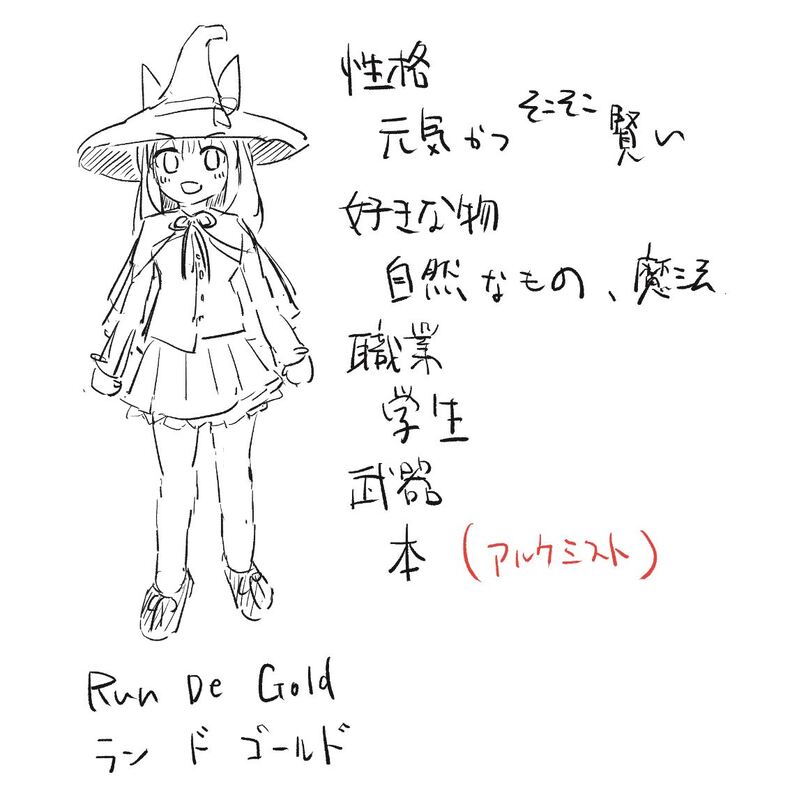 性格
元気かつそこそこ賢い
好きな物
自然なもの、魔法
職業
学生
武器
本 (アルケミスト)
Run De Gold
ラン ド ゴールド